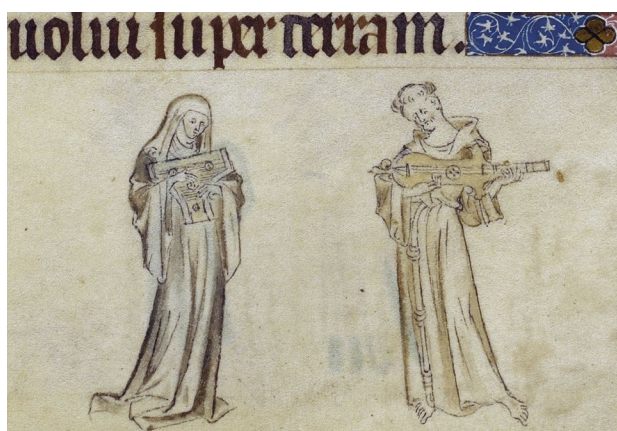 uolui super terram.